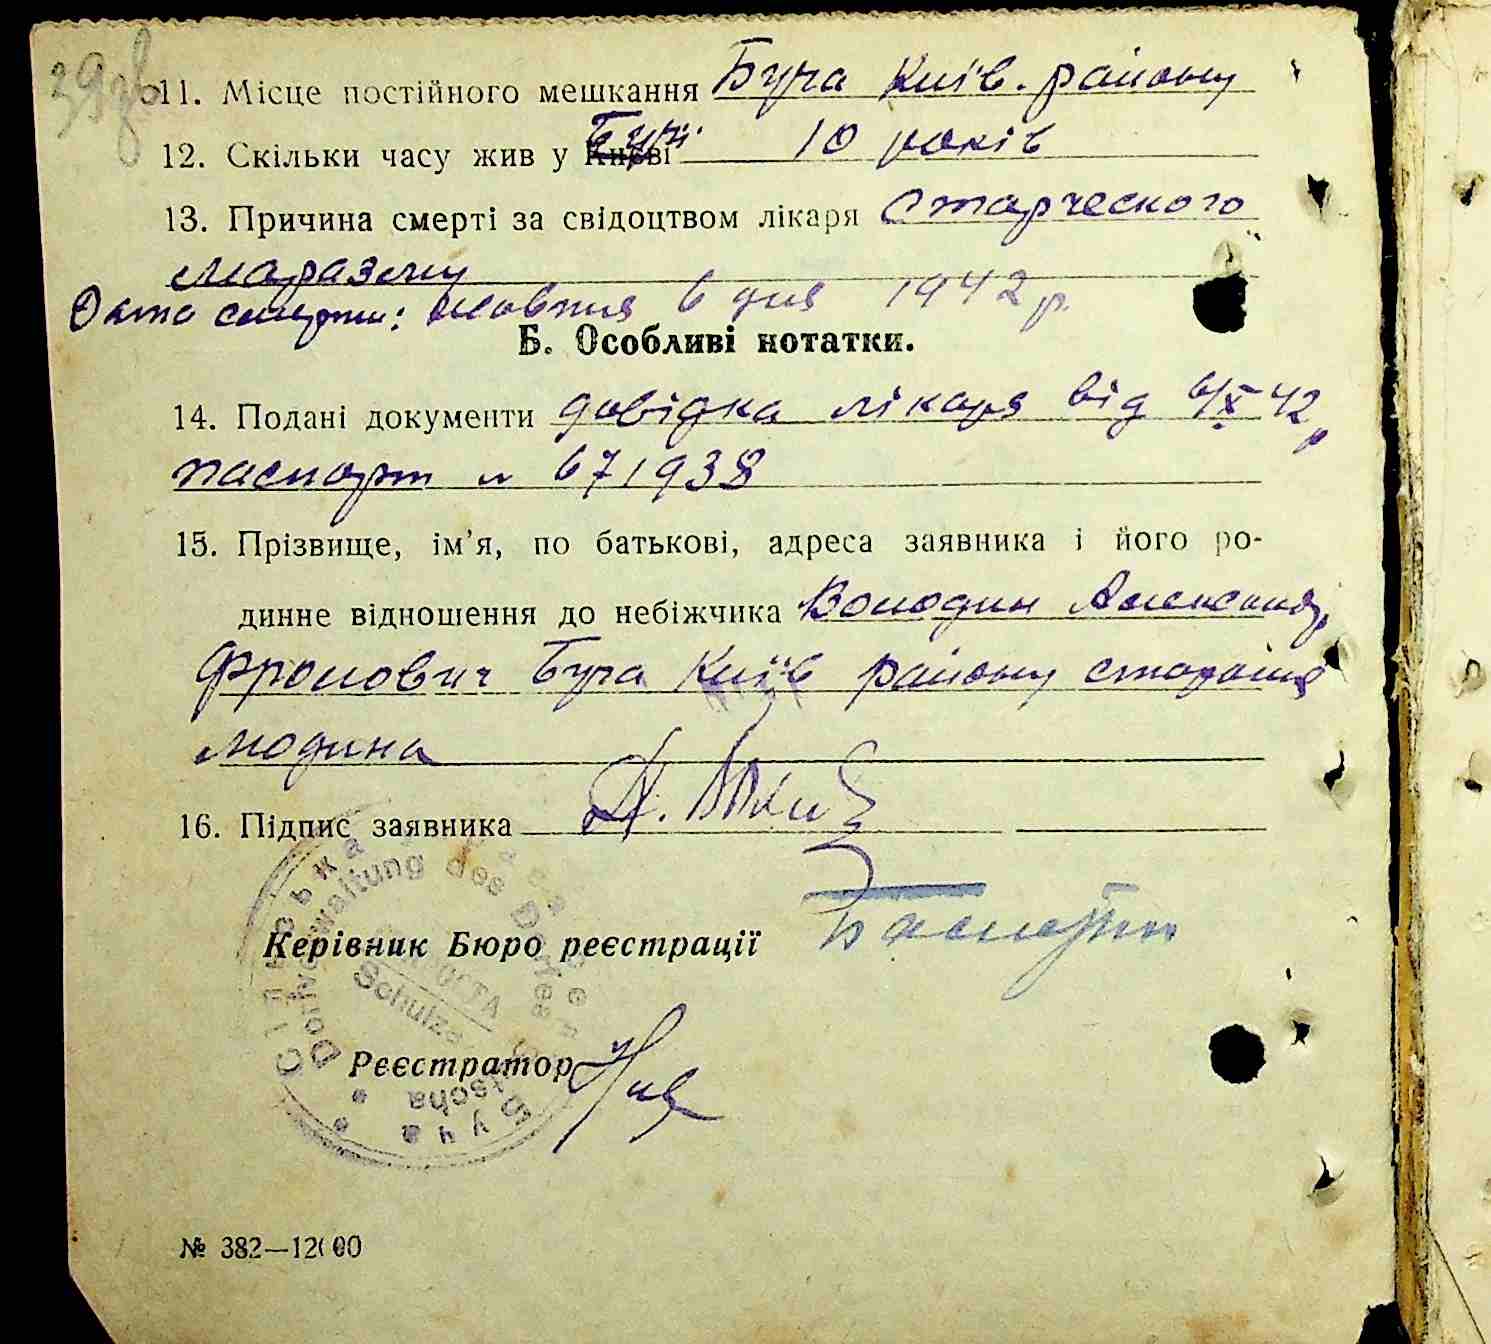 39зв
11. Місце постійного мешкання Буча Київ. району
12. Скільки часу жив у Києві Бучі 10 років
13. Причина смерті за свідоцтвом лікаря Старческого
маразму
Дата смерти: жовтня 6 дня 1942 р.
Б. Особливі нотатки.
14. Подані документи довідка лікаря від 6/X 42 р
паспорт № 671938
15. Прізвище, ім'я, по батькові, адреса заявника і його ро-
динне відношення до небіжчика Володин Александр
Фролович Буча Київ району стороння
людина
16. Підпис заявника
Керівник Бюро реєстрації
Реєстратор
Dorfverwaltung des Dorfes
Schulze
Буча
№ 382—12000